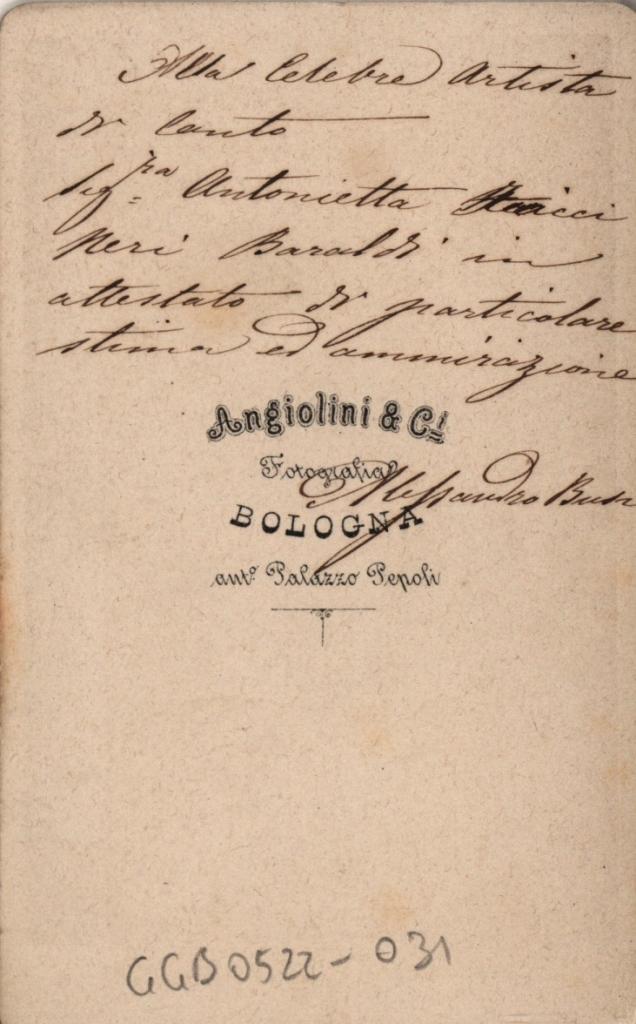 Alla Celebre Artista
di Canto
Sig.ra Antonietta
Neri Baraldi in
attestato di particolare
stima ed ammirazione
Angiolini & C.i
Fotografia
Alessandro Busi
BOLOGNA
ant.o Palazzo Pepoli
GGB0522-031